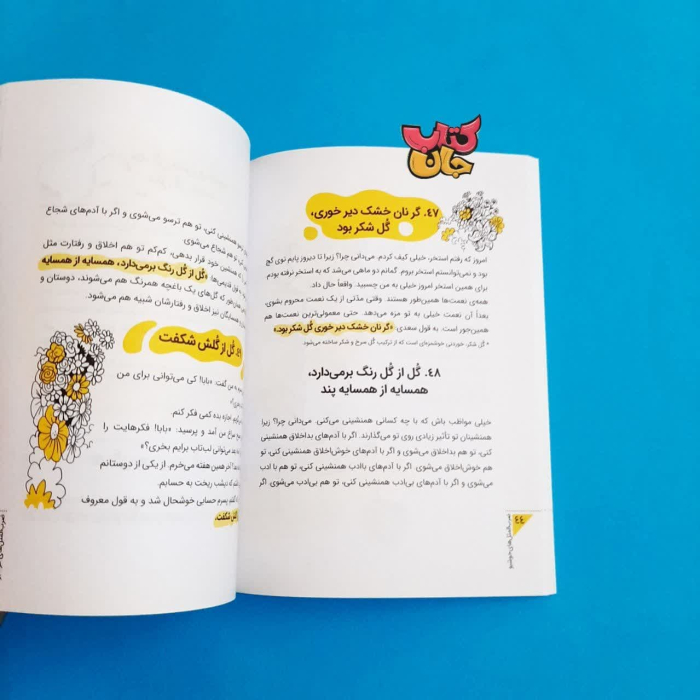 کتاب
جان
۴۷. گر نان خشک دیر خوری،
گُل شکر بود
امروز که رفتم استخر، خیلی کیف کردم. می‌دانی چرا؟ زیرا تا دیروز پایم توی گچ
بود و نمی‌توانستم استخر بروم. گمانم دو ماهی می‌شد که به استخر نرفته بودم.
برای همین استخر امروز خیلی به من چسبید. واقعاً حال داد.
همه‌ی نعمت‌ها همین‌طور هستند. وقتی مدتی از یک نعمت محروم بشوی،
بعداً آن نعمت خیلی به تو مزه می‌دهد. حتی معمولی‌ترین نعمت‌ها هم
همین‌جور است. به قول سعدی: «گر نان خشک دیر خوری گُل شکر بود.»
* گُل شکر، خوردنی خوشمزه‌ای است که از ترکیب گُل سرخ و شکر ساخته می‌شود.
۴۸. گُل از گُل رنگ برمی‌دارد،
همسایه از همسایه پند
خیلی مواظب باش که با چه کسانی همنشینی می‌کنی. می‌دانی چرا؟ زیرا
همنشینان تو تأثیر زیادی روی تو می‌گذارند. اگر با آدم‌های بداخلاق همنشینی
کنی، تو هم بداخلاق می‌شوی و اگر با آدم‌های خوش‌اخلاق همنشینی کنی، تو
هم خوش‌اخلاق می‌شوی. اگر با آدم‌های باادب همنشینی کنی، تو هم با ادب
می‌شوی و اگر با آدم‌های بی‌ادب همنشینی کنی، تو هم بی‌ادب می‌شوی. اگر
۴۴
همنشینی کنی، تو هم ترسو می‌شوی و اگر با آدم‌های شجاع
هم شجاع می‌شوی.
همنشین خود قرار بدهی، کم‌کم تو هم اخلاق و رفتارت مثل
قول قدیمی‌ها: «گُل از گُل رنگ برمی‌دارد، همسایه از همسایه
همان‌طور که گل‌های یک باغچه همرنگ هم می‌شوند، دوستان و
همسایگان نیز اخلاق و رفتارشان شبیه هم می‌شود.
۴۹. گُل از گُلش شکفت
به من گفت: «بابا! کی می‌توانی برای من
اجازه بده کمی فکر کنم.
سراغ من آمد و پرسید: «بابا! فکرهایت را
می‌توانی لب‌تاب برایم بخری؟»
آخر همین هفته می‌خرم. از یکی از دوستانم
که دیشب ریخت به حسابم.
پسرم حسابی خوشحال شد و به قول معروف
گلش شکفت.